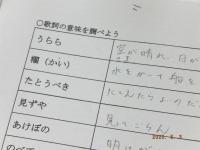 ○歌詞の意味を調べよう
うらら
空が晴れ、日が
櫂（かい）
水をかいて船を
たとうべき
たとえたらよいのだ
見ずや
見てごらん
あけぼの
明け
のべて